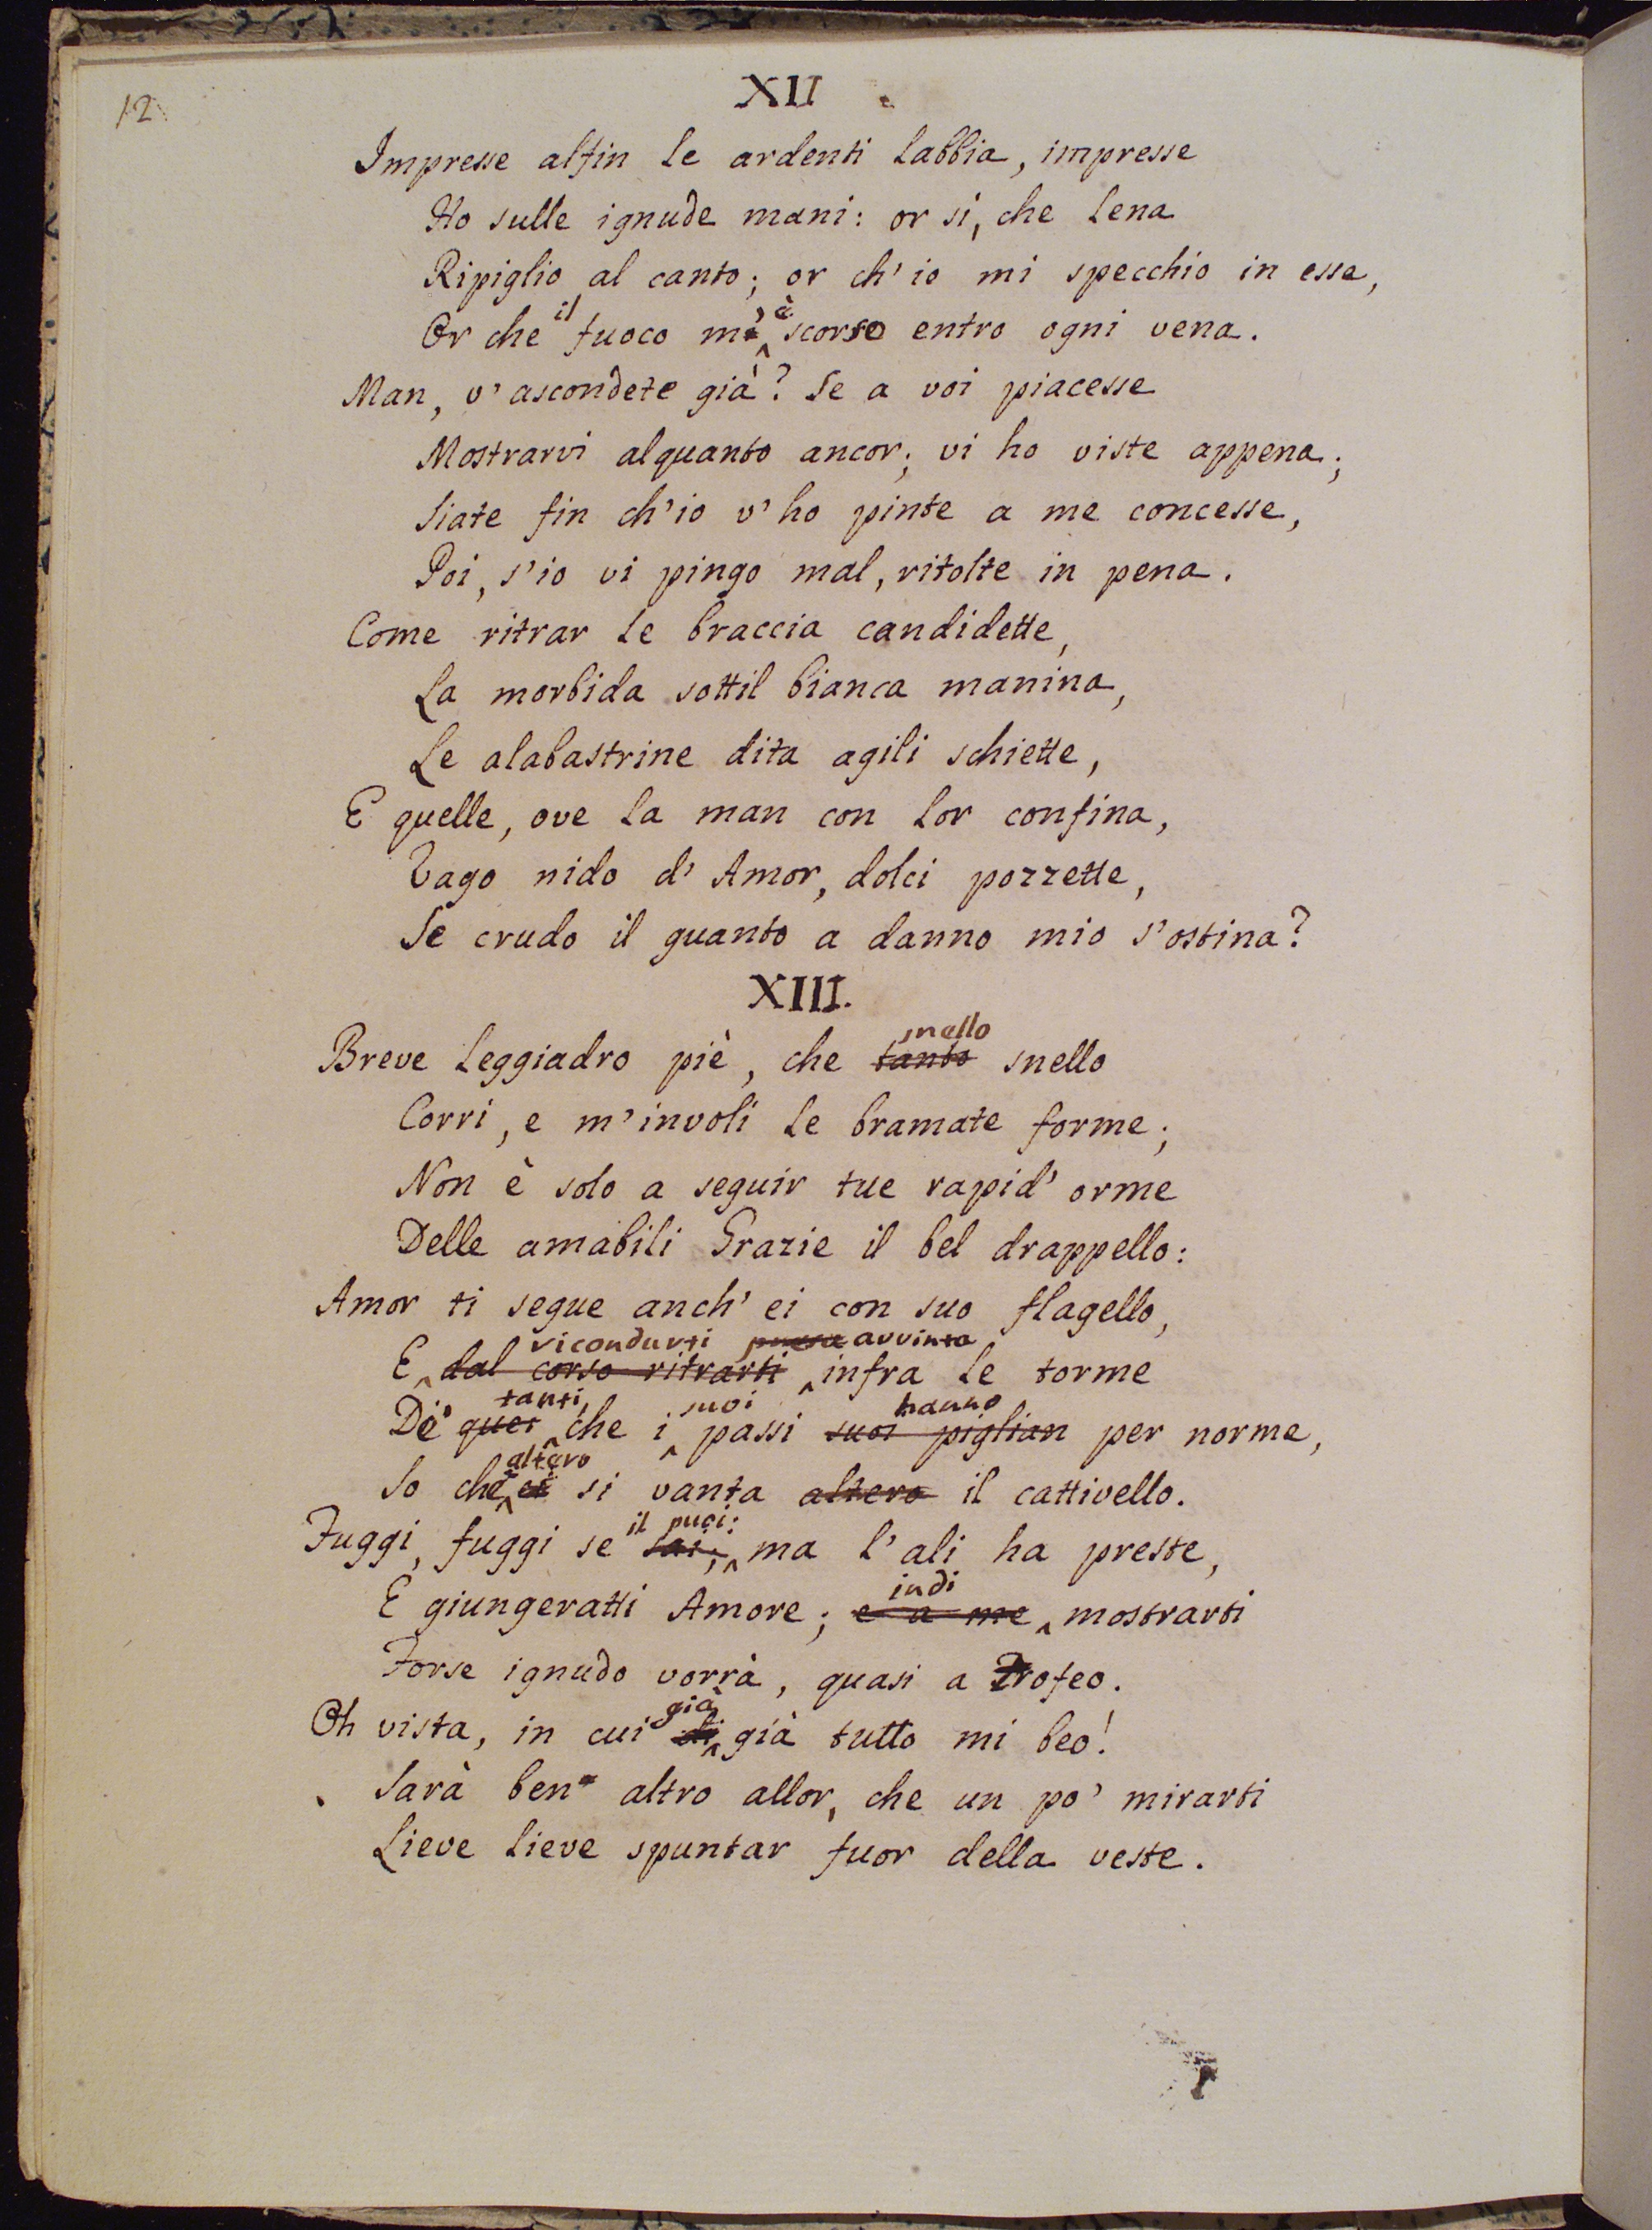 12
XII
Impresse alfin le ardenti labbia, impresse
Ho sulle ignude mani: or sì, che lena
Ripiglio al canto; or ch'io mi specchio in esse,
Or che il fuoco m'è scorso entro ogni vena.
Man, v'ascondete già? Se a voi piacesse
Mostrarvi alquanto ancor; vi ho viste appena;
Siate fin ch'io v'ho pinte a me concesse,
Poi, s'io vi pingo mal, ritolte in pena.
Come ritrar le braccia candidette,
La morbida sottil bianca manina,
Le alabastrine dita agili schiette,
E quelle, ove la man con lor confina,
Vago nido d'Amor, dolci pozzette,
Se crudo il guanto a danno mio s'ostina?
XIII.
snello
Breve leggiadro piè, che tanto snello
Corri, e m'involi le bramate forme;
Non è solo a seguir tue rapid' orme
Delle amabili Grazie il bel drappello:
Amor ti segue anch' ei con suo flagello,
ricondurti avvinto
E dal corso ritrarti infra le torme
tanti suoi hanno
De' quei che i passi suoi piglian per norme,
altero
So che ei si vanta altero il cattivello.
il puoi:
Fuggi, fuggi se sai; ma l'ali ha preste,
indi
E giungeratti Amore; e a me mostrarti
Forse ignudo vorrà, quasi a Trofeo.
già
Oh vista, in cui di già tutto mi beo!
Sarà ben altro allor, che un po' mirarti
Lieve lieve spuntar fuor della veste.